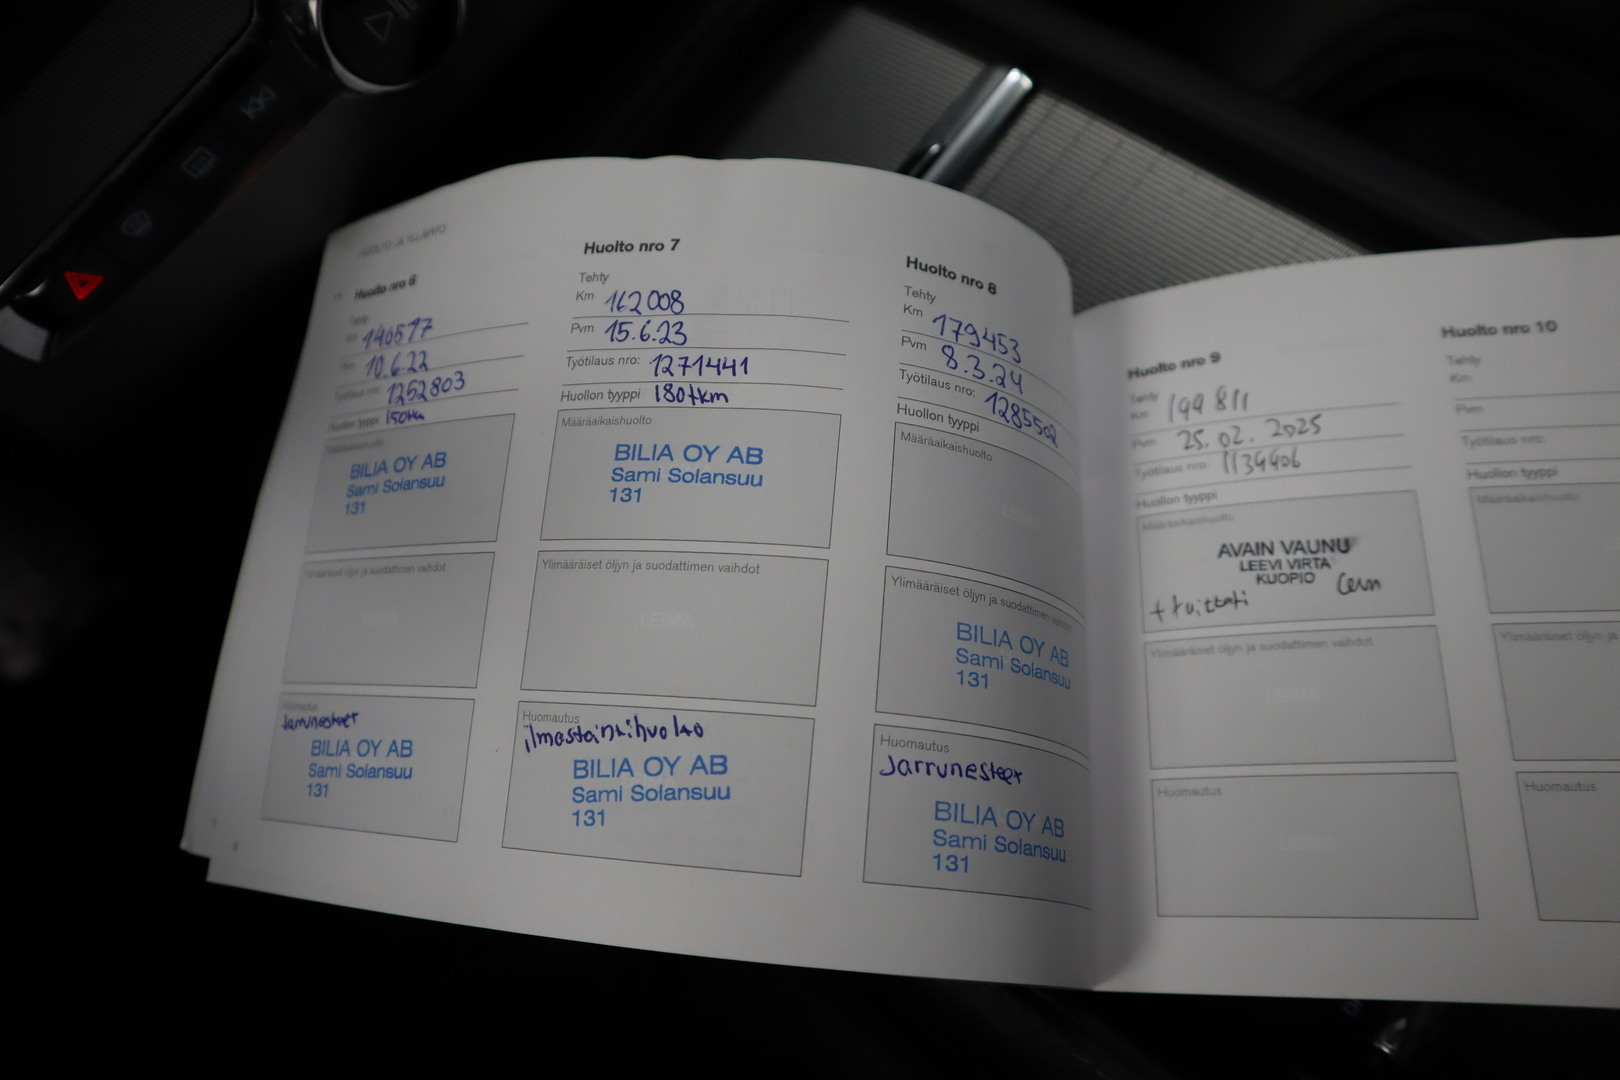 HUOLTO JA YLLÄPITO
Huolto nro 6
Tehty
Km 140517
Pvm 10.6.22
Työtilaus nro: 1252803
Huollon tyyppi 150tkm
Määräaikaishuolto
BILIA OY AB
Sami Solansuu
131
Ylimääräiset öljyn ja suodattimen vaihdot
LEIMA
Huomautus
Jarrunesteet
BILIA OY AB
Sami Solansuu
131
Huolto nro 7
Tehty
Km 162008
Pvm 15.6.23
Työtilaus nro: 1271441
Huollon tyyppi 180tkm
Määräaikaishuolto
BILIA OY AB
Sami Solansuu
131
Ylimääräiset öljyn ja suodattimen vaihdot
LEIMA
Huomautus
ilmastointihuolto
BILIA OY AB
Sami Solansuu
131
Huolto nro 8
Tehty
Km 179453
Pvm 8.3.24
Työtilaus nro: 1285502
Huollon tyyppi
Määräaikaishuolto
LEIMA
Ylimääräiset öljyn ja suodattimen vaihdot
BILIA OY AB
Sami Solansuu
131
Huomautus
Jarrunesteet
BILIA OY AB
Sami Solansuu
131
8
Huolto nro 9
Tehty
Km 199 811
Pvm 25.02.2025
Työtilaus nro: 1134406
Huollon tyyppi
Määräaikaishuolto
AVAIN VAUNU
LEEVI VIRTA
KUOPIO
Ylimääräiset öljyn ja suodattimen vaihdot
LEIMA
Huomautus
LEIMA
Huolto nro 10
Tehty
Km
Pvm
Työtilaus nro:
Huollon tyyppi
Määräaikaishuolto
Ylimääräiset öljyn ja
Huomautus